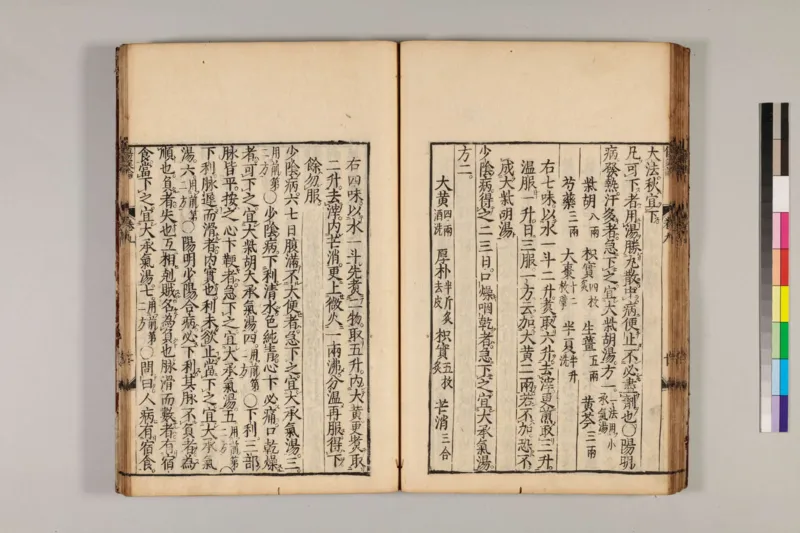 大法秋宜下
凡可下者用湯勝丸散中病便止不必盡劑也○陽明
病發熱汗多者急下之宜大柴胡湯方一一法用小承氣湯
柴胡八兩 枳實四枚炙 生薑五兩 黄芩三兩
芍藥三兩 大棗十二枚擘 半夏半升洗
右七味以水一斗二升煑取六升去滓更煎取三升
温服一升日三服一方云加大黄二兩若不加恐不
成大柴胡湯
少陰病得之二三日口燥咽乾者急下之宜大承氣湯
方二
大黄四兩酒洗 厚朴半斤炙去皮 枳實五枚炙 芒消三合
右四味以水一斗先煑二物取五升内大黄更煑取
二升去滓内芒消更上微火一兩沸分温再服得下
餘勿服
少陰病六七日腹滿不大便者急下之宜大承氣湯三
用前第二方○少陰病下利清水色純青心下必痛口乾燥
者可下之宜大柴胡大承氣湯四用前第二方○下利三部
脉皆平按之心下鞕者急下之宜大承氣湯五用前第二方○
下利脉遲而滑者内實也利未欲止當下之宜大承氣
湯六用前第二方○陽明少陽合病必下利其脉不負者爲
順也負者失也互相剋賊名爲負也脉滑而數者有宿
食當下之宜大承氣湯七用前第二方○問曰人病有宿食